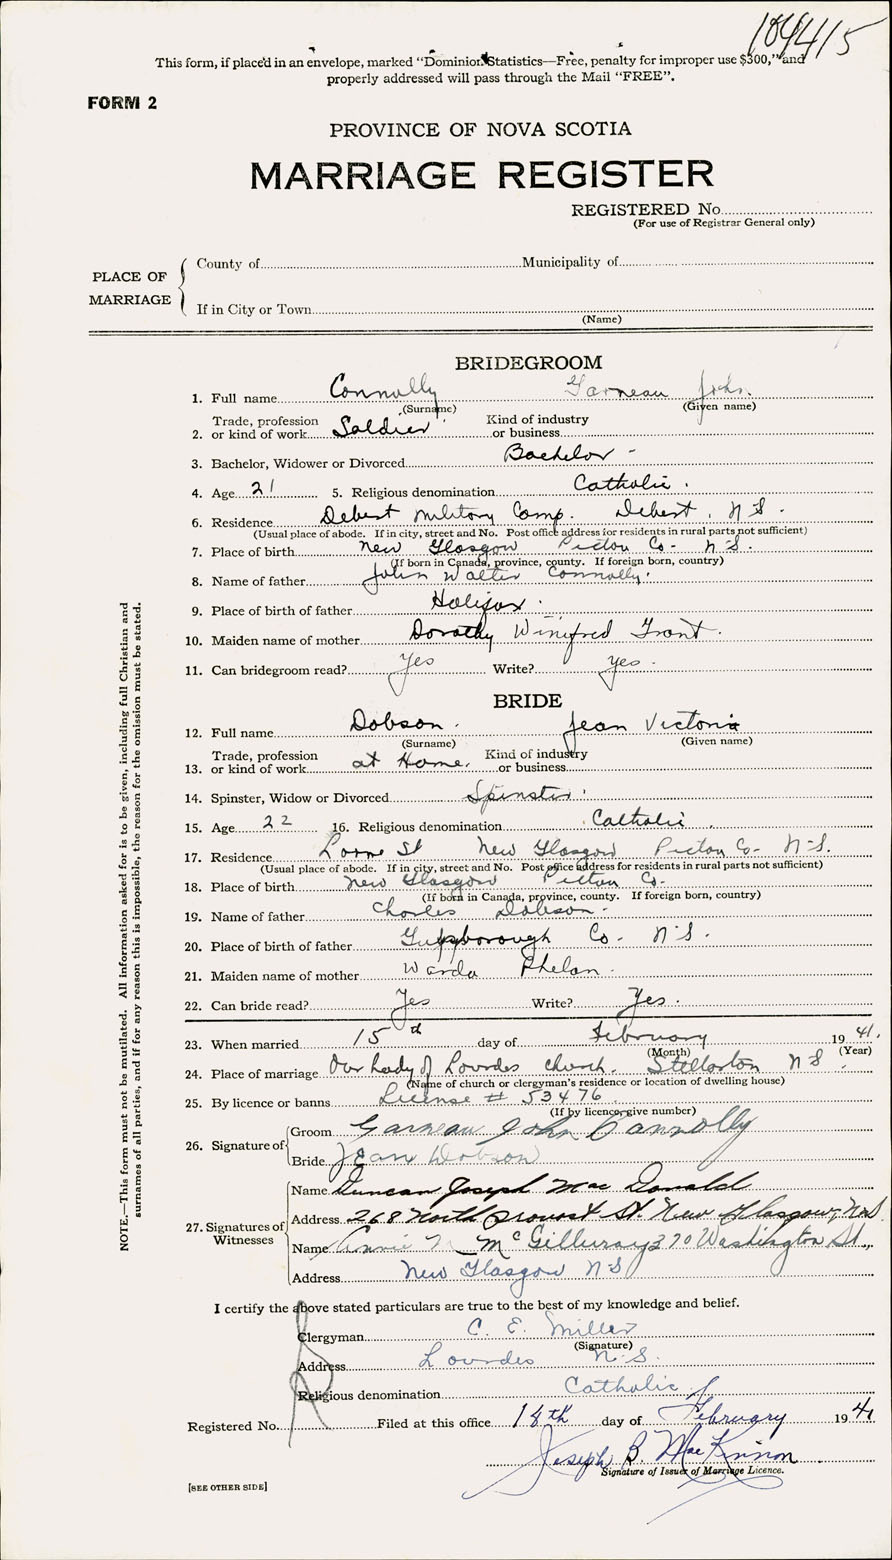 104415
This form, if placed in an envelope, marked “Dominion Statistics—Free, penalty for improper use $300,” and
properly addressed will pass through the Mail “FREE”.
FORM 2
PROVINCE OF NOVA SCOTIA
MARRIAGE REGISTER
REGISTERED No.
(For use of Registrar General only)
PLACE OF MARRIAGE
County of Municipality of
If in City or Town
(Name)
BRIDEGROOM
1. Full name Connolly Garneau John.
(Surname) (Given name)
2. Trade, profession or kind of work Soldier Kind of industry or business
3. Bachelor, Widower or Divorced Bachelor -
4. Age 21 5. Religious denomination Catholic.
6. Residence Debert Military Camp. Debert, N S.
(Usual place of abode. If in city, street and No. Post office address for residents in rural parts not sufficient)
7. Place of birth New Glasgow Pictou Co- N S.
(If born in Canada, province, county. If foreign born, country)
8. Name of father John Walter Connolly.
9. Place of birth of father Halifax.
10. Maiden name of mother Dorothy Winifred Grant.
11. Can bridegroom read? Yes Write? Yes.
BRIDE
12. Full name Dobson. Jean Victoria
(Surname) (Given name)
13. Trade, profession or kind of work at Home. Kind of industry or business
14. Spinster, Widow or Divorced Spinster.
15. Age 22 16. Religious denomination Catholic
17. Residence Lorne St New Glasgow Pictou Co- N-S.
(Usual place of abode. If in city, street and No. Post office address for residents in rural parts not sufficient)
18. Place of birth New Glasgow Pictou Co.
(If born in Canada, province, county. If foreign born, country)
19. Name of father Charles Dobson.
20. Place of birth of father Guysborough Co- N-S.
21. Maiden name of mother Warda Phelan.
22. Can bride read? Yes Write? Yes.
23. When married 15th day of February 1941.
(Month) (Year)
24. Place of marriage Our Lady of Lourdes church. Stellarton N S.
(Name of church or clergyman's residence or location of dwelling house)
25. By licence or banns License # 53476
(If by licence, give number)
26. Signature of
Groom Garneau John Connolly
Bride Jean Dobson
27. Signatures of Witnesses
Name Duncan Joseph MacDonald
Address 268 North Provost St. New Glasgow, N.S.
Name Annie McGillivray 370 Washington St.,
Address New Glasgow N S
I certify the above stated particulars are true to the best of my knowledge and belief.
Clergyman C. E. Miller
(Signature)
Address Lourdes N.S.
Religious denomination Catholic
Registered No. Filed at this office 18th day of February 1941
Joseph B. MacKinnon
Signature of Issuer of Marriage Licence.
[SEE OTHER SIDE]
NOTE.—This form must not be mutilated. All information asked for is to be given, including full Christian and
surnames of all parties, and if for any reason this is impossible, the reason for the omission must be stated.